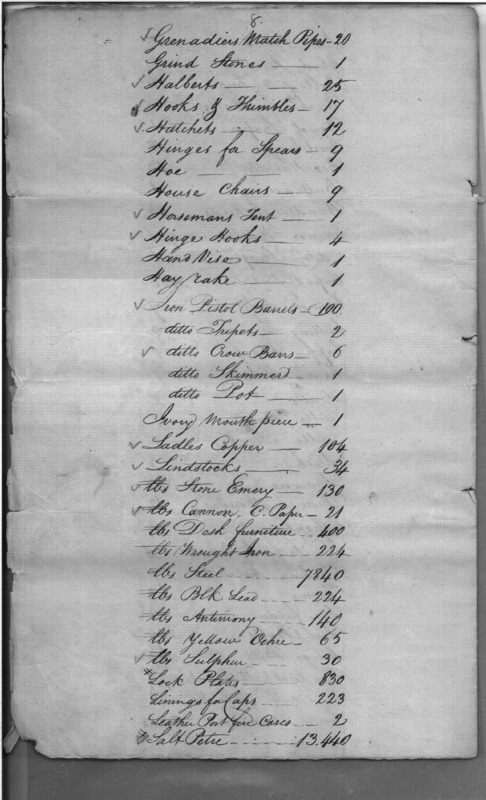 8.
✓ Grenadiers Match Pipes - 20
Grind Stones — 1
✓ Halberts — 25
✓ Hooks & Thimbles - 17
✓ Hatchets — 12
Hinges for Spears - 9
Hoe — 1
House Chairs — 9
✓ Horsemans Tent — 1
✓ Hinge Hooks — 4
Hand Vise — 1
Hay rake — 1
✓ Iron Pistol Barrels - 100
ditto Tripets - 2
✓ ditto Crow Bars - 6
ditto Skimmers 1
ditto Pot — 1
Ivory Mouth piece - 1
✓ Ladles Copper — 104
✓ Lindstocks — 34
✓ lbs Stone Emery — 130
✓ lbs Cannon C. Paper - 21
lbs Desk furniture - 400
lbs Wrought Iron - 224
lbs Steel 7840
lbs Blk Lead 224
lbs Antimony - 140
lbs Yellow Ochre - 65
✓ lbs Sulphur 30
* Lock Plates 830
Linings for Caps 223
Leather Port fire Cases - 2
* Salt Petre 13.440